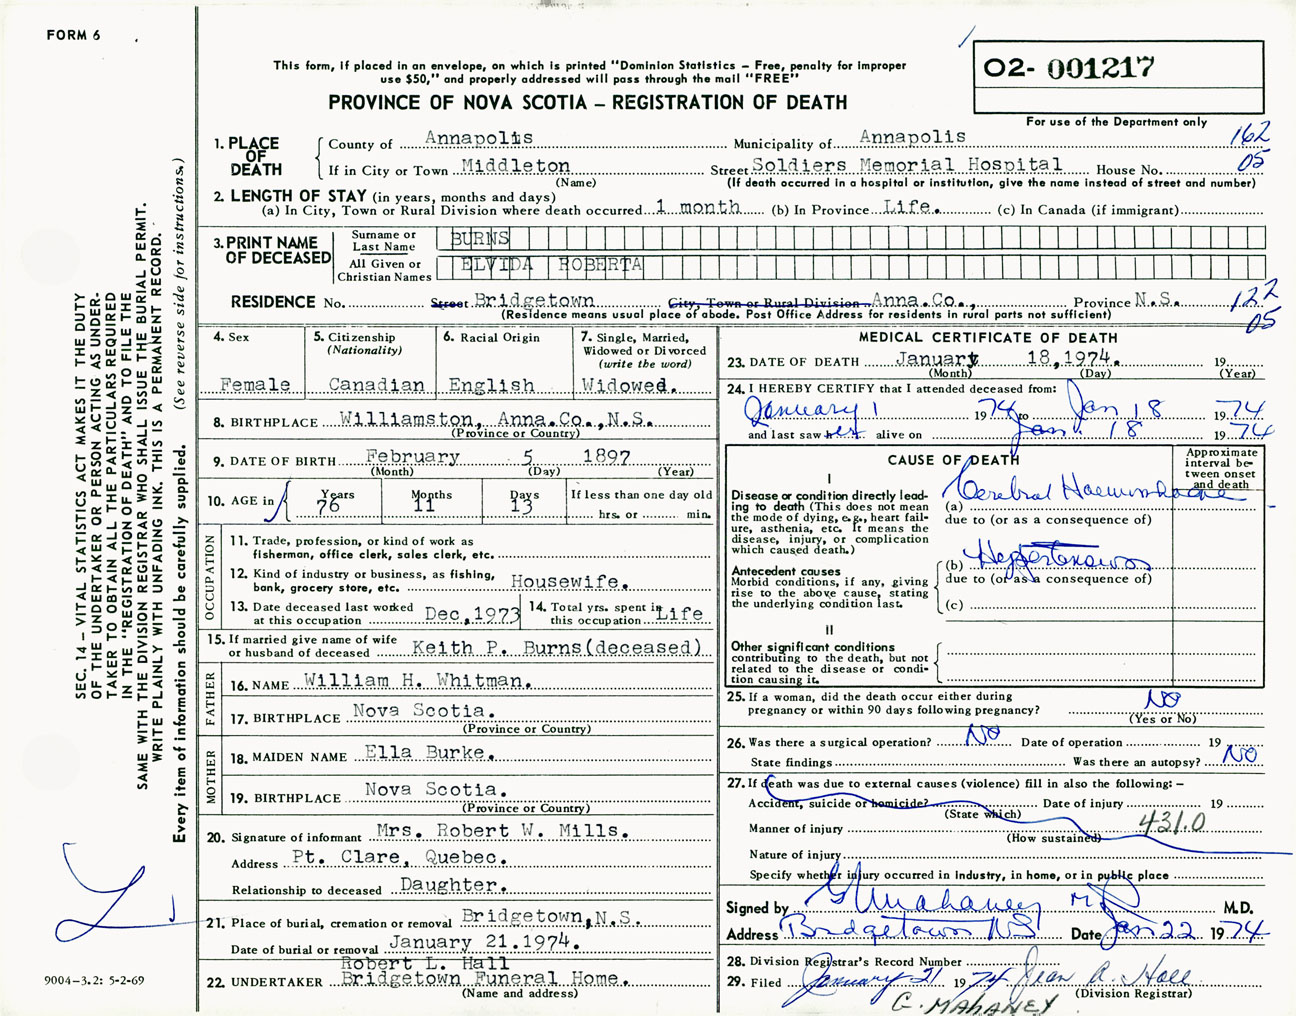 FORM 6
This form, if placed in an envelope, on which is printed "Dominion Statistics – Free, penalty for improper
use $50," and properly addressed will pass through the mail "FREE"
PROVINCE OF NOVA SCOTIA – REGISTRATION OF DEATH
O2- 001217
For use of the Department only
1. PLACE OF DEATH
County of Annapolis Municipality of Annapolis 162
If in City or Town Middleton Street Soldiers Memorial Hospital House No. 05
(Name) (If death occurred in a hospital or institution, give the name instead of street and number)
2. LENGTH OF STAY (in years, months and days)
(a) In City, Town or Rural Division where death occurred 1 month (b) In Province Life. (c) In Canada (if immigrant)
3. PRINT NAME OF DECEASED
Surname or Last Name BURNS
All Given or Christian Names ELVIDA ROBERTA
RESIDENCE No. Street Bridgetown City, Town or Rural Division Anna.Co., Province N.S. 122
(Residence means usual place of abode. Post Office Address for residents in rural parts not sufficient) 05
4. Sex
Female
5. Citizenship
(Nationality)
Canadian
6. Racial Origin
English
7. Single, Married,
Widowed or Divorced
(write the word)
Widowed.
8. BIRTHPLACE Williamston, Anna.Co.,N.S.
(Province or Country)
9. DATE OF BIRTH February 5 1897
(Month) (Day) (Year)
10. AGE in Years Months Days If less than one day old
76 11 13 hrs. or min.
OCCUPATION
11. Trade, profession, or kind of work as
fisherman, office clerk, sales clerk, etc.
12. Kind of industry or business, as fishing,
bank, grocery store, etc. Housewife.
13. Date deceased last worked
at this occupation Dec,1973
14. Total yrs. spent in
this occupation Life
15. If married give name of wife
or husband of deceased Keith P. Burns(deceased)
FATHER
16. NAME William H. Whitman.
17. BIRTHPLACE Nova Scotia.
(Province or Country)
MOTHER
18. MAIDEN NAME Ella Burke.
19. BIRTHPLACE Nova Scotia.
(Province or Country)
20. Signature of informant Mrs. Robert W. Mills.
Address Pt. Clare, Quebec.
Relationship to deceased Daughter.
21. Place of burial, cremation or removal Bridgetown,N.S.
Date of burial or removal January 21.1974.
Robert L. Hall
22. UNDERTAKER Bridgetown Funeral Home.
(Name and address)
MEDICAL CERTIFICATE OF DEATH
23. DATE OF DEATH January 18,1974. 19
(Month) (Day) (Year)
24. I HEREBY CERTIFY that I attended deceased from:
January 1 1974 to Jan 18 1974
and last saw her alive on Jan. 18 1974
CAUSE OF DEATH
Approximate
interval be-
tween onset
and death
I
Disease or condition directly lead-
ing to death (This does not mean
the mode of dying, e.g., heart fail-
ure, asthenia, etc. It means the
disease, injury, or complication
which caused death.)
(a) Cerebral Haemorrhage
due to (or as a consequence of)
Antecedent causes
Morbid conditions, if any, giving
rise to the above cause, stating
the underlying condition last.
(b) Hypertension
due to (or as a consequence of)
(c)
II
Other significant conditions
contributing to the death, but not
related to the disease or condi-
tion causing it.
25. If a woman, did the death occur either during
pregnancy or within 90 days following pregnancy? NO
(Yes or No)
26. Was there a surgical operation? NO Date of operation 19
State findings Was there an autopsy? NO
27. If death was due to external causes (violence) fill in also the following: –
Accident, suicide or homicide? Date of injury 19
(State which)
Manner of injury 431.0
(How sustained)
Nature of injury
Specify whether injury occurred in industry, in home, or in public place
Signed by G Mahaney MD M.D.
Address Bridgetown NS Date Jan 22 1974
28. Division Registrar's Record Number
29. Filed January 21 1974 Jean A. Hall
(Division Registrar)
G. MAHANEY
SEC. 14 – VITAL STATISTICS ACT MAKES IT THE DUTY
OF THE UNDERTAKER OR PERSON ACTING AS UNDER-
TAKER TO OBTAIN ALL THE PARTICULARS REQUIRED
IN THE "REGISTRATION OF DEATH" AND TO FILE THE
SAME WITH THE DIVISION REGISTRAR WHO SHALL ISSUE THE BURIAL PERMIT.
WRITE PLAINLY WITH UNFADING INK. THIS IS A PERMANENT RECORD.
Every item of information should be carefully supplied. (See reverse side for instructions.)
9004–3.2: 5-2-69